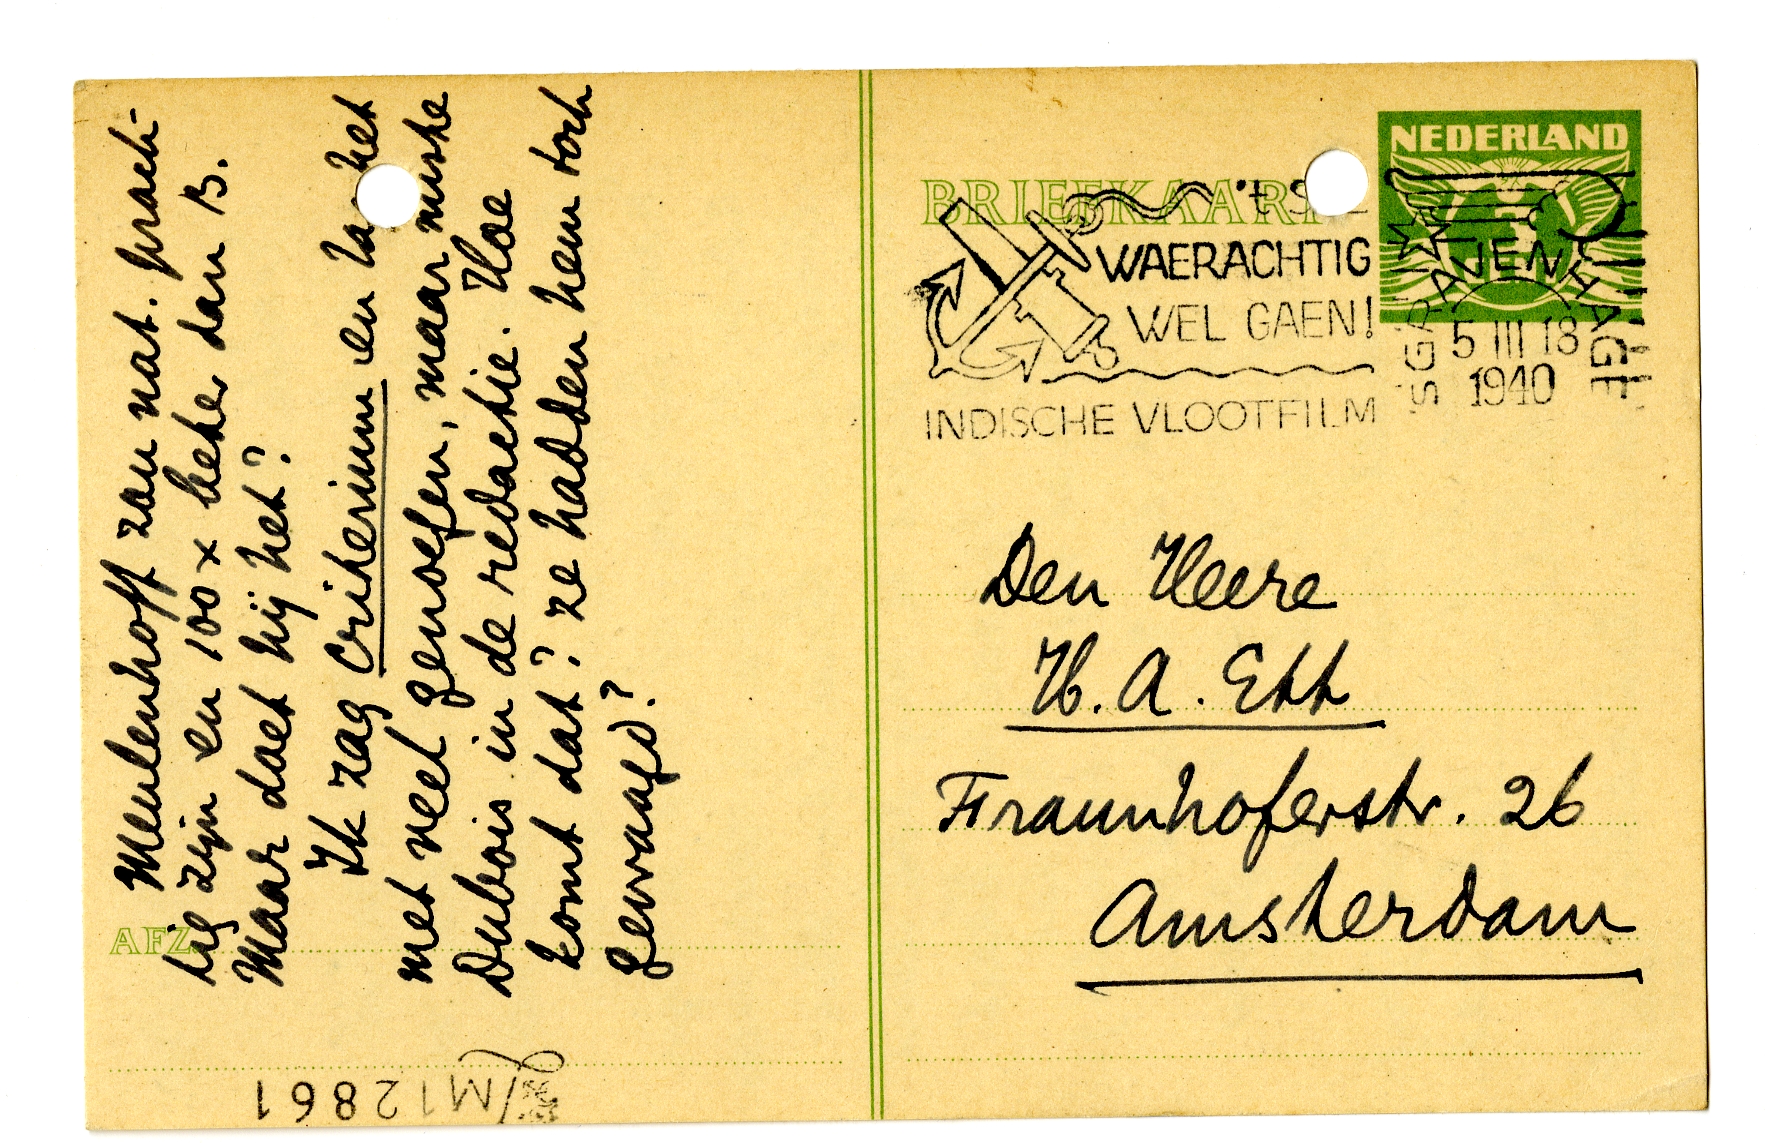 Meulenhoff zou nat. prach-
tig zijn en 100 x beter dan B.
Maar doet hij het?
Ik zag Criterium en las het
met veel genoegen, maar miste
Dubois in de redactie. Hoe
komt dat? ze hadden hem toch
gevraagd?
AFZ.
M12861
BRIEFKAART
NEDERLAND
't SAL
WAERACHTIG
WEL GAEN!
INDISCHE VLOOTFILM
'SGRAVENHAGE
5 III 18
1940
Den Heere
H. A. Ett
Fraunhoferstr. 26
Amsterdam